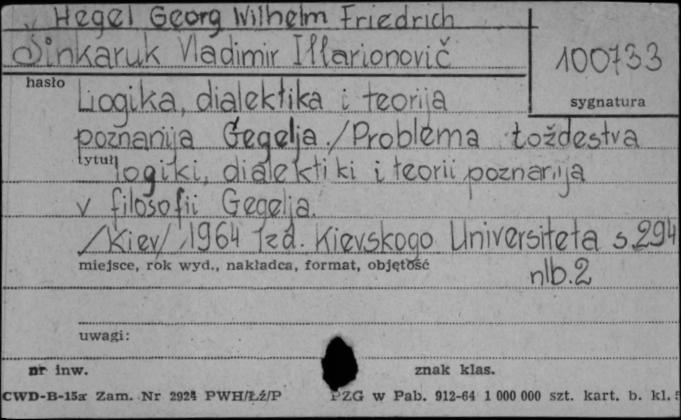 v Hegel Georg Wilhelm Friedrich
Šinkaruk Vladimir Illarionovič
100733
hasło
sygnatura
Logika, dialektika i teorija
poznanija Gegelja. /Problema toždestva
tytuł
logiki, dialektiki i teorii poznanija
v filosofii Gegelja.
/Kiev/ 1964 Izd. Kievskogo Universiteta s. 294
miejsce, rok wyd., nakładca, format, objętość
nlb. 2
uwagi:
nr inw.
znak klas.
CWD-B-15a Zam. Nr 2924 PWH/Łź/P
PZG w Pab. 912-64 1 000 000 szt. kart. b. kl. 5